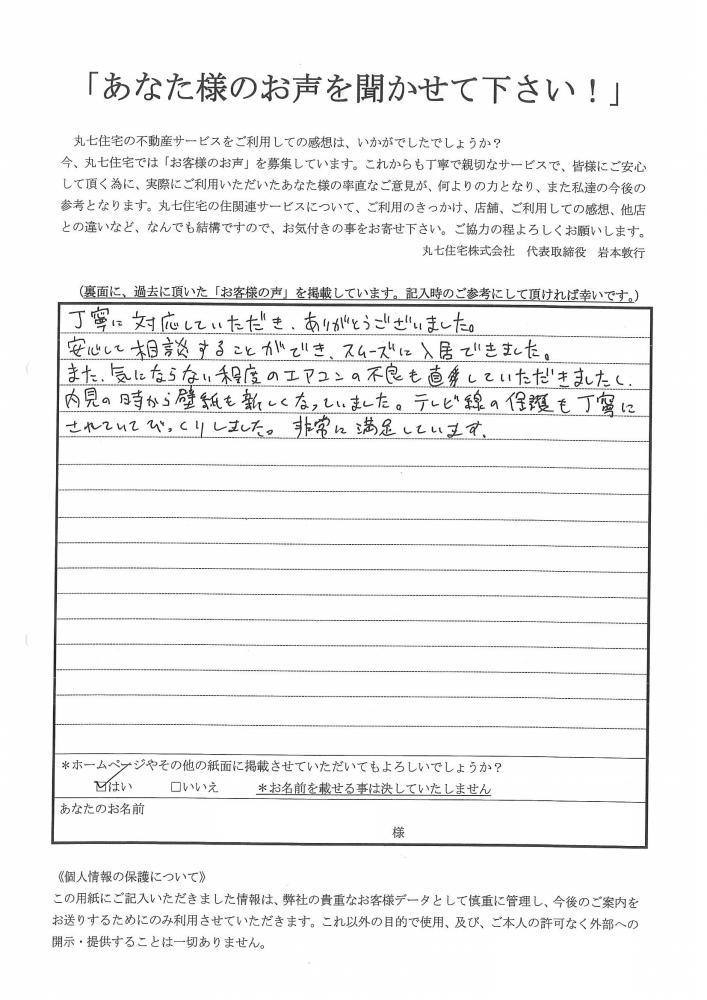 「あなた様のお声を聞かせて下さい！」
丸七住宅の不動産サービスをご利用しての感想は、いかがでしたでしょうか？
今、丸七住宅では「お客様のお声」を募集しています。これからも丁寧で親切なサービスで、皆様にご安心
して頂く為に、実際にご利用いただいたあなた様の率直なご意見が、何よりの力となり、また私達の今後の
参考となります。丸七住宅の住関連サービスについて、ご利用のきっかけ、店舗、ご利用しての感想、他店
との違いなど、なんでも結構ですので、お気付きの事をお寄せ下さい。ご協力の程よろしくお願いします。
丸七住宅株式会社　代表取締役　岩本敦行
（裏面に、過去に頂いた「お客様の声」を掲載しています。記入時のご参考にして頂ければ幸いです。）
丁寧に対応していただき、ありがとうございました。
安心して相談することができ、スムーズに入居できました。
また、気にならない程度のエアコンの不良も直していただきましたし、
内見の時から壁紙も新しくなっていました。テレビ線の保護も丁寧に
されていてびっくりしました。非常に満足しています。
＊ホームページやその他の紙面に掲載させていただいてもよろしいでしょうか？
☑はい　□いいえ　＊お名前を載せる事は決していたしません
あなたのお名前
様
《個人情報の保護について》
この用紙にご記入いただきました情報は、弊社の貴重なお客様データとして慎重に管理し、今後のご案内を
お送りするためにのみ利用させていただきます。これ以外の目的で使用、及び、ご本人の許可なく外部への
開示・提供することは一切ありません。